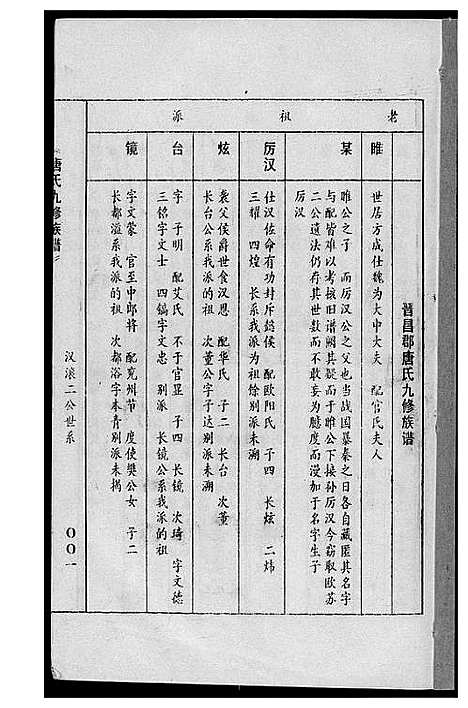 晋昌郡唐氏九修族谱
老祖派
睢
世居方成仕魏为大中大夫 配官氏夫人
某
睢公之子 而厉汉公之父也当战国暴秦之日各自藏匿其名字
与配皆难以考核旧谱阙其疑而于睢公下接孙厉汉今窃取欧苏
二公遗法仍存其世数而不敢妄为臆度而漫加于名字生子
厉汉
厉汉
仕汉佐命有功封斥懿侯 配欧阳氏 子四 长炫 二炜
三耀 四煌 长系我派为祖馀别派未溯
炫
袭父侯爵世食汉恩 配华氏 子二 长台 次董
长台公系我派的祖 次董公字子达别派未溯
台
字子明 配艾氏 不于官显 子四 长镜 次琦 字文德
三铭字文士 四镐字文忠 别派 长镜公系我派的祖
镜
字文蒙 官至中郎将 配兖州节 度使樊公女 子二
长都溢系我派的祖 次都浴字本青别派未揭
唐氏九修族谱
汉滚二公世系
〇〇一